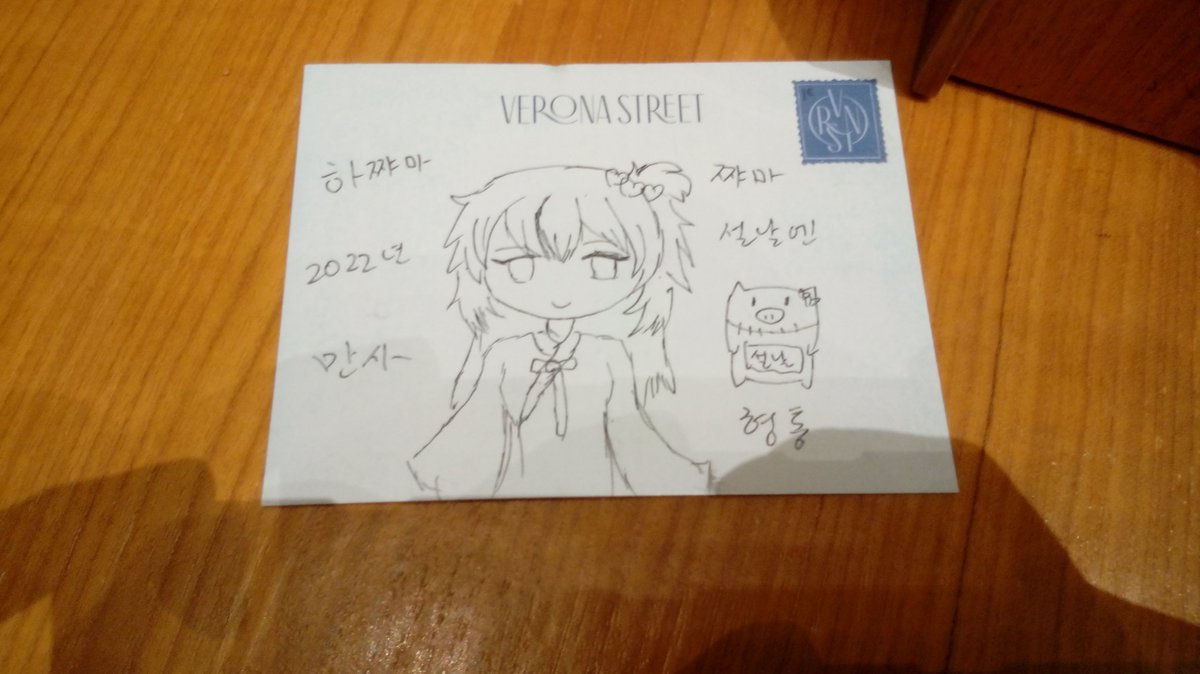 VERONA STREET
VRNST
하쨔마 쨔마
2022년 설날엔
설날
만사~ 형통